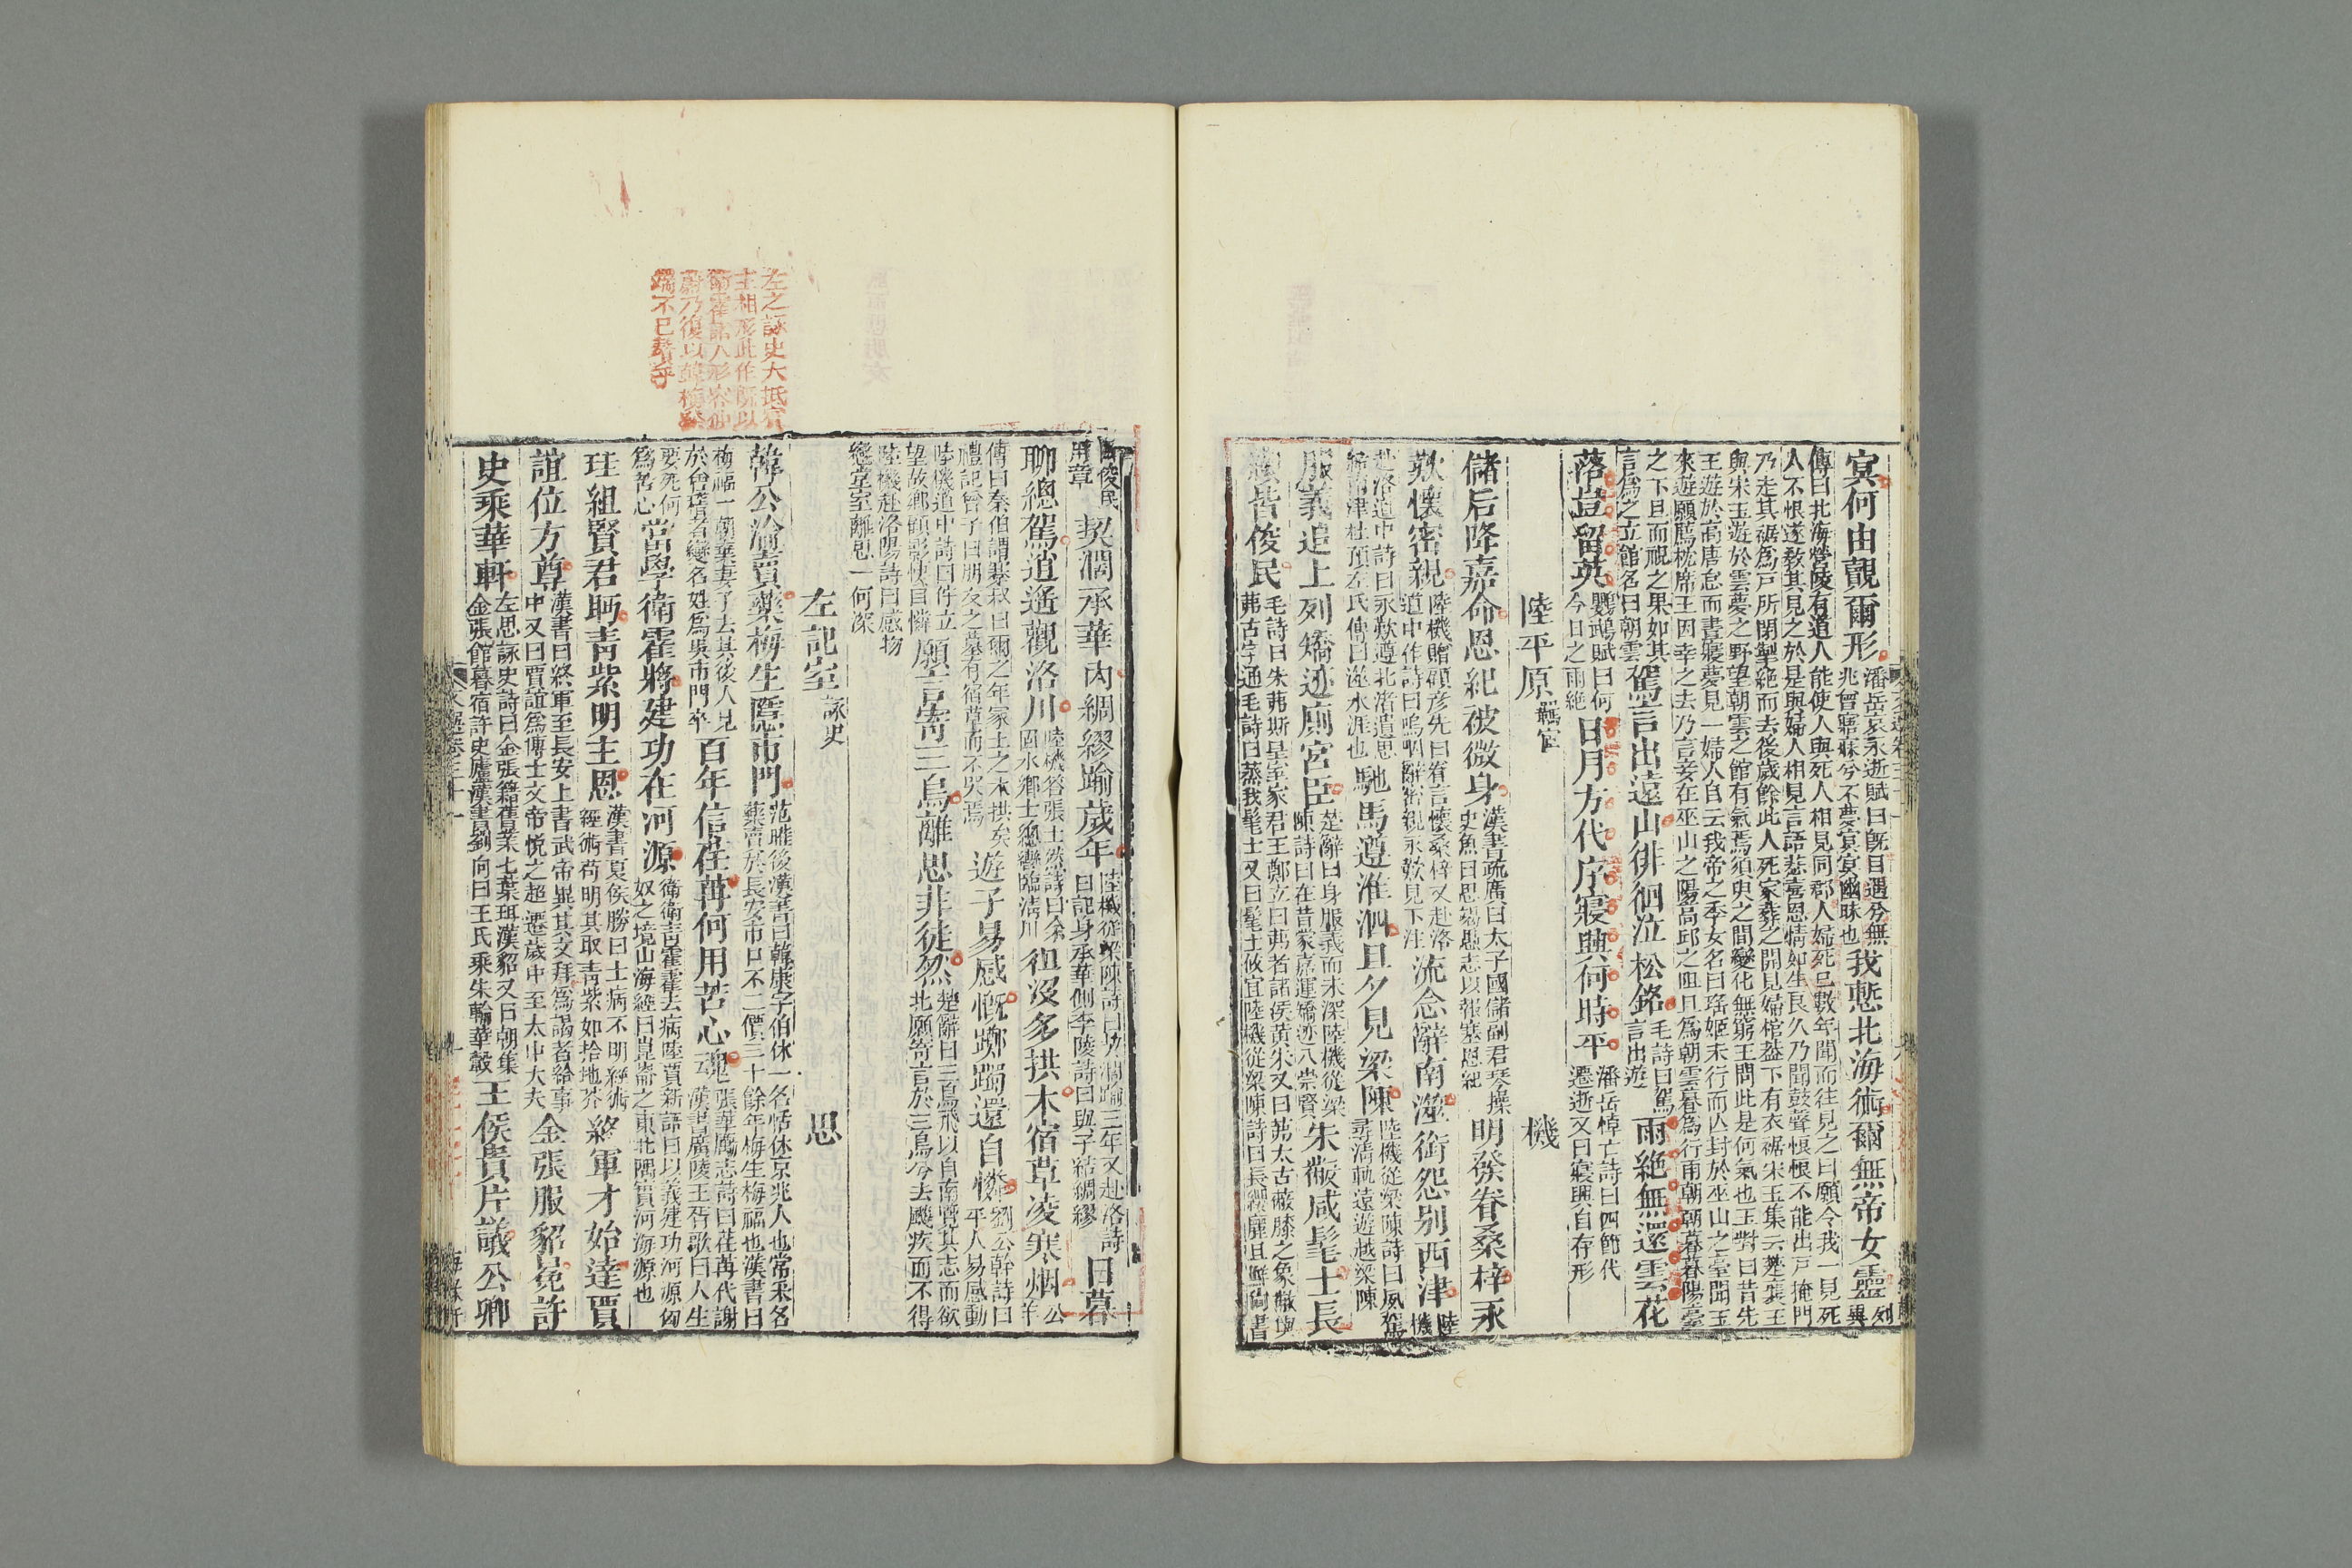 冥何由覿爾形潘岳哀永逝賦曰旣目遇兮無
兆曾寤寐兮不夢冥冥幽昧也我慙北海術爾無帝女靈列異
傳曰北海營陵有道人能使人與死人相見同郡人婦死已數年聞而往見之曰願令我一見死
人不恨遂敎其見之於是與婦人相見言語悲喜恩情如生良久乃聞鼓聲悢悢不能出戶掩門
乃走其裾爲戶所閉掣絶而去後歲餘此人死家葬之開見婦棺葢下有衣裾宋玉集云楚襄王
與宋玉遊於雲夢之野望朝雲之館有氣焉須臾之間變化無窮王問此是何氣也玉對曰昔先
王遊於高唐怠而晝寢夢見一婦人自云我帝之季女名曰瑤姬未行而亡封於巫山之臺聞王
來遊願薦枕席王因幸之去乃言妾在巫山之陽高邱之阻旦爲朝雲暮爲行雨朝朝暮暮陽臺
之下旦而視之果如其
言爲之立館名曰朝雲駕言出遠山徘徊泣松銘毛詩曰駕
言出遊雨絶無還雲花
落豈留英鸚鵡賦曰何
今日之雨絶日月方代序寢興何時平潘岳悼亡詩曰四節代
遷逝又曰寢興自存形
陸平原羈宦　機
儲后降嘉命恩紀被微身漢書疏廣曰太子國儲副君琴操
史魚曰思竭愚志以報塞恩紀明發眷桑梓永
歎懷密親陸機贈顧彥先曰眷言懷桑梓又赴洛
道中作詩曰嗚咽辭密親永歎見下注流念辭南澨銜怨別西津陸機
赴洛道中詩曰永歎遵北渚遺思
結南津杜預左氏傳曰澨水涯也馳馬遵淮泗旦夕見梁陳陸機從梁陳詩曰夙駕
尋清軌遠遊越梁陳
服義追上列矯迹廁宮臣楚辭曰身服義而未沬陸機從梁
陳詩曰在昔蒙嘉運矯迹入崇賢朱黻咸髦士長
纓皆俊民毛詩曰朱茀斯皇室家君王鄭立曰茀者諸侯黃朱又曰茀太古蔽膝之象黻與
茀古字通毛詩曰蒸我髦士又曰髦士攸宜陸機從梁陳詩曰長纓麗且鮮尙書
曰俊民
用章契濶承華內綢繆踰歲年陸機從梁陳詩曰契濶踰三年又赴洛詩
曰託身承華側李陵詩曰與子結綢繆日暮
聊總駕逍遙觀洛川陸機答張士然詩曰余
固水鄉士總轡臨淸川徂沒多拱木宿草凌寒烟公羊
傳曰秦伯謂蹇叔曰爾之年冢上之木拱矣
禮記曾子曰朋友之墓有宿草而不哭焉遊子易感慨躑躅還自憐劉公幹詩曰
平人易感動
陸機道中詩曰佇立
望故鄉顧影悽自憐願言寄三鳥離思非徒然楚辭曰三鳥飛以自南覽其志而欲
北願寄言於三鳥兮去飈疾而不得
陸機赴洛陽詩曰感物
戀堂室離思一何深
左記室詠史　思
韓公淪賣藥梅生隱市門范曄後漢書曰韓康字伯休一名恬休京兆人也常采名
藥賣於長安市口不二價三十餘年梅生梅福也漢書曰
梅福一朝棄妻子去其後人見
於會稽者變名姓爲吳市門卒百年信荏苒何用苦心魂張華勵志詩曰荏苒代謝
漢書廣陵王胥歌曰人生
要死何
爲苦心當學衛霍將建功在河源衛衛靑霍霍去病陸賈新語曰以義建功河源匈
奴之境山海經曰崑崙之東北隅實河海源也
珪組賢君眄靑紫明主恩漢書夏侯勝曰士病不明經術
經術茍明其取靑紫如拾地芥終軍才始達賈
誼位方尊漢書曰終軍至長安上書武帝異其文拜爲謁者給事
中又曰賈誼爲傳士文帝悅之超遷歲中至太中大夫金張服貂冕許
史乘華軒左思詠史詩曰金張籍舊業七葉珥漢貂又曰朝集
金張館暮宿許史廬漢書劉向曰王氏乘朱輪華轂王侯貴片議公卿
左之詠史大抵賓
主相形此作旣以
衛霍諸人形容仲
蔚乃復以韓梅發
端不已贅乎